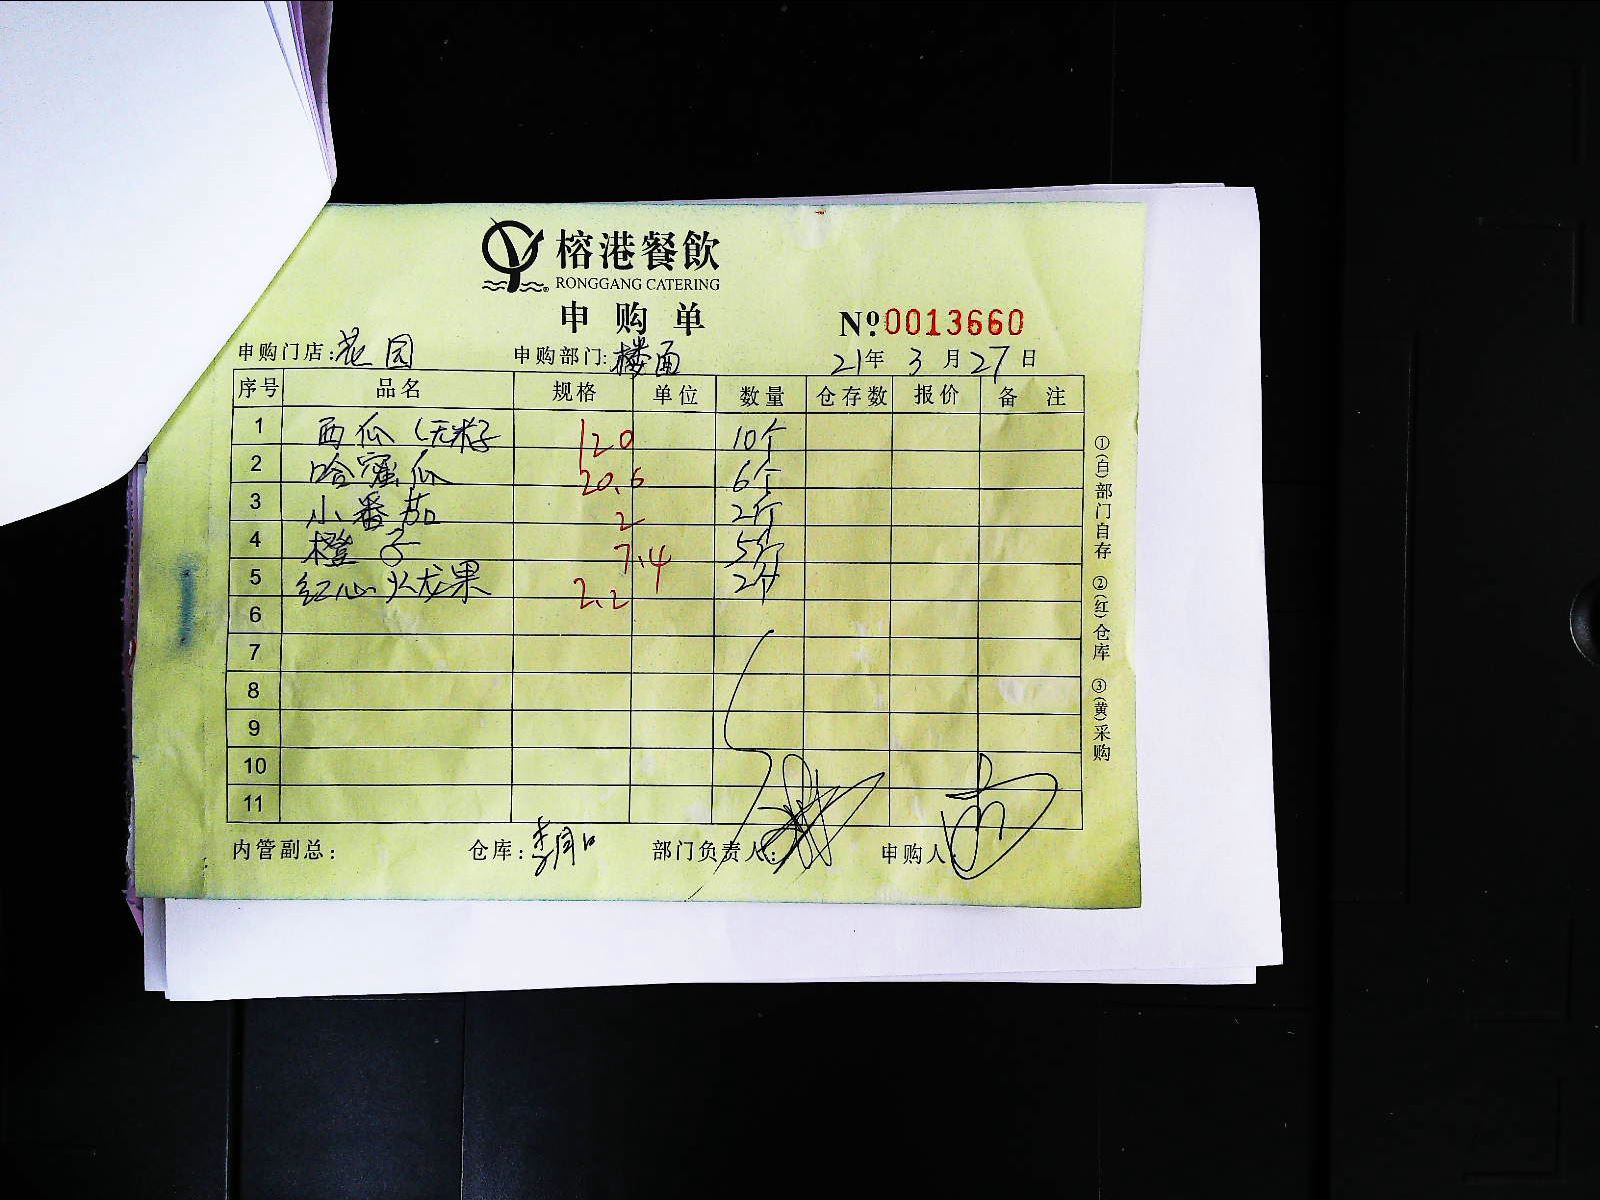 榕港餐飲
RONGGANG CATERING
申购单
Nº 0013660
申购门店:花园 申购部门:楼面 21年3月27日
序号 品名 规格 单位 数量 仓存数 报价 备注
1 西瓜(无籽子 120 10个
2 哈密瓜 20.6 6个
3 小番茄 2 2斤
4 橙子 7.4 5斤
5 红心火龙果 2.2 2斤
6
7
8
9
10
11
①(白)部门自存 ②(红)仓库 ③(黄)采购
内管副总: 仓库: 部门负责人: 申购人: